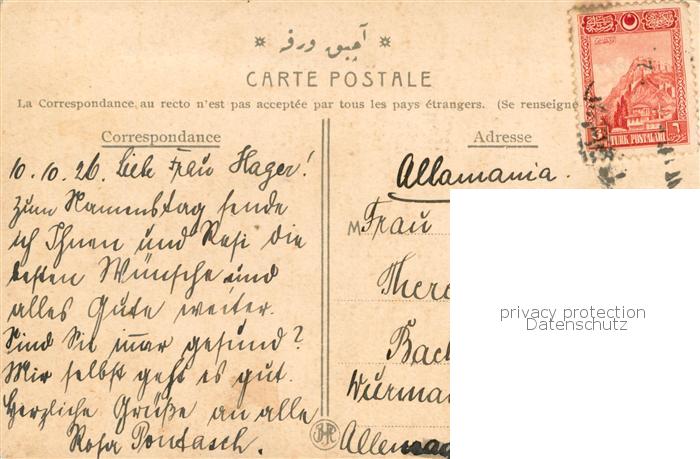 آچیق ورقه
CARTE POSTALE
La Correspondance au recto n'est pas acceptée par tous les pays étrangers. (Se renseigne
Correspondance
10.10.26. Liebe Frau Hager!
Zum Namenstag sende
ich Ihnen und Resi die
besten Wünsche und
alles Gute weiter.
Sind Sie immer gesund?
Mir selbst geht es gut.
Herzliche Grüße an alle
Rosa Pontasch.
Adresse
Allamania.
M Frau
There
Bach
Wurman
Allemag
TÜRK POSTALARI
6
privacy protection
Datenschutz